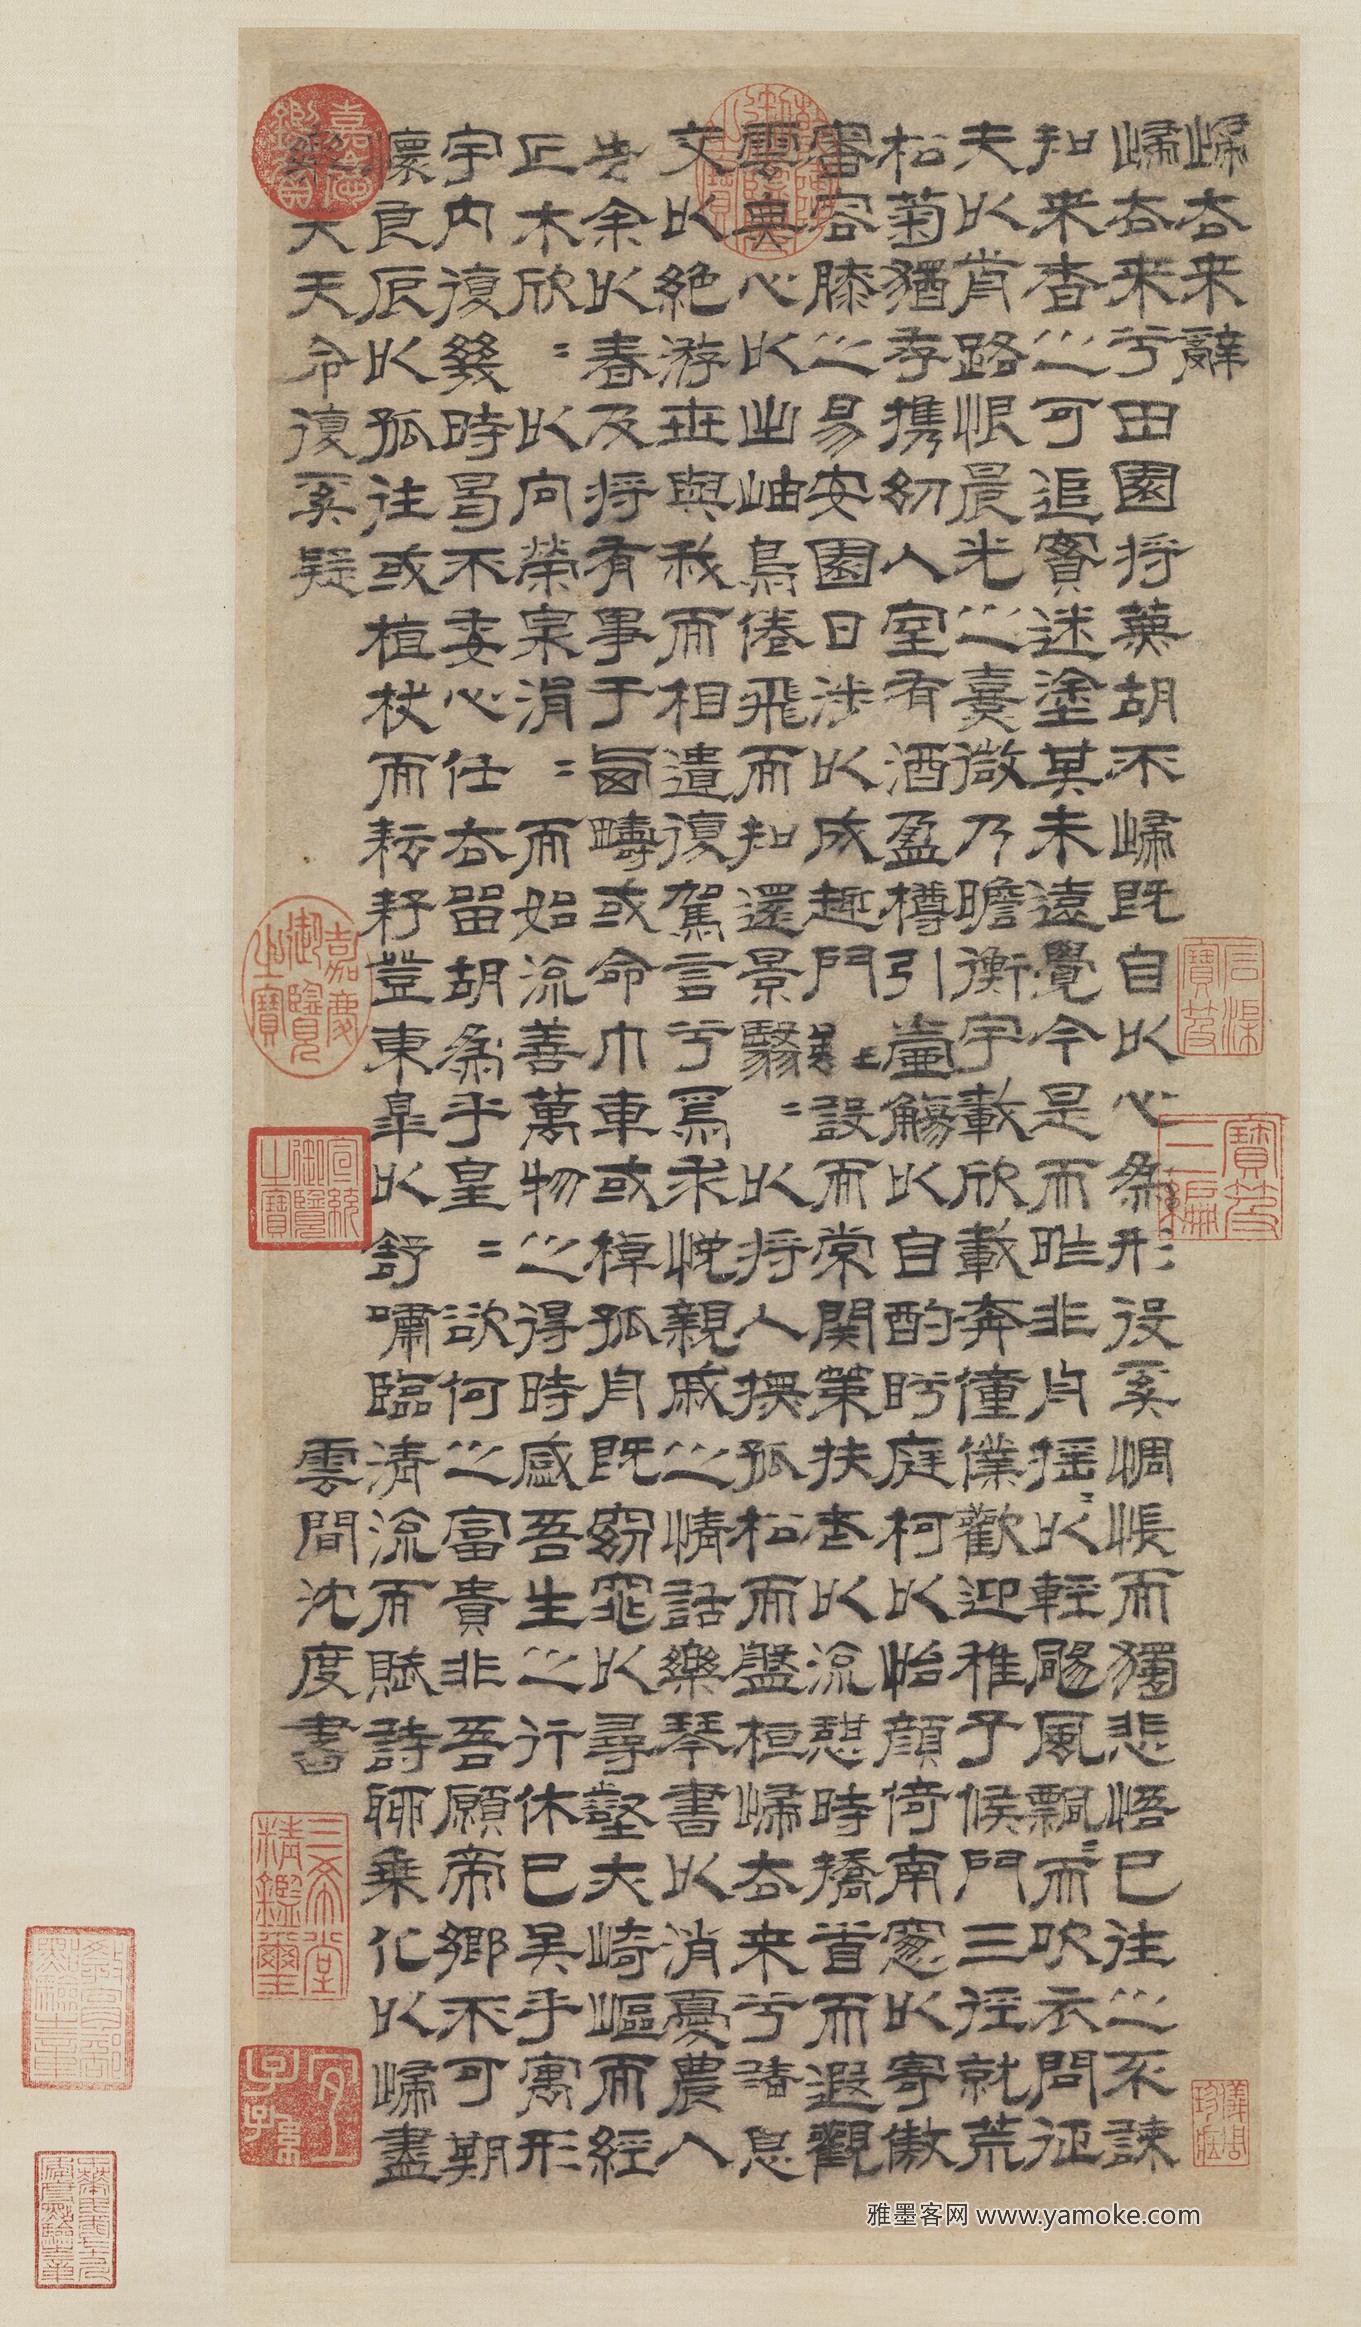 歸去来辭
歸去来兮田園将蕪胡不歸既自以心為形役奚惆悵而獨悲悟已往之不諫
知来者之可追實迷塗其未遠覺今是而昨非舟揺〻以輕颺風飄〻而吹衣問征
夫以前路恨晨光之熹微乃瞻衡宇載欣載奔僮僕歡迎稚子候門三徑就荒
松菊猶存携幼入室有酒盈樽引壺觴以自酌眄庭柯以怡顏倚南窓以寄傲
審容膝之易安園日涉以成趣門雖設而常関策扶老以流憩時撟首而遐觀
雲無心以出岫鳥倦飛而知還景翳〻以将入撫孤松而盤桓歸去来兮請息
交以絶游世與我而相遺復駕言兮焉求悦親戚之情話樂琴書以消憂農人
告余以春及将有事于西疇或命巾車或棹孤舟既窈窕以尋壑亦崎嶇而經
丘木欣〻以向榮泉涓〻而始流善萬物之得時感吾生之行休已矣乎寓形
宇内復幾時曷不委心任去留胡為乎皇〻欲何之富貴非吾願帝鄉不可期
懷良辰以孤往或植杖而耘耔登東皋以舒嘯臨清流而賦詩聊乗化以歸盡
樂夫天命復奚疑
雲間沈度書
石渠寶笈
寶笈三編
儀周珍藏
嘉慶鑑賞
嘉慶御覽之寶
宣統御覽之寶
三希堂精鑑璽
宜子孫
教育部點驗之章
雅墨客网 www.yamoke.com